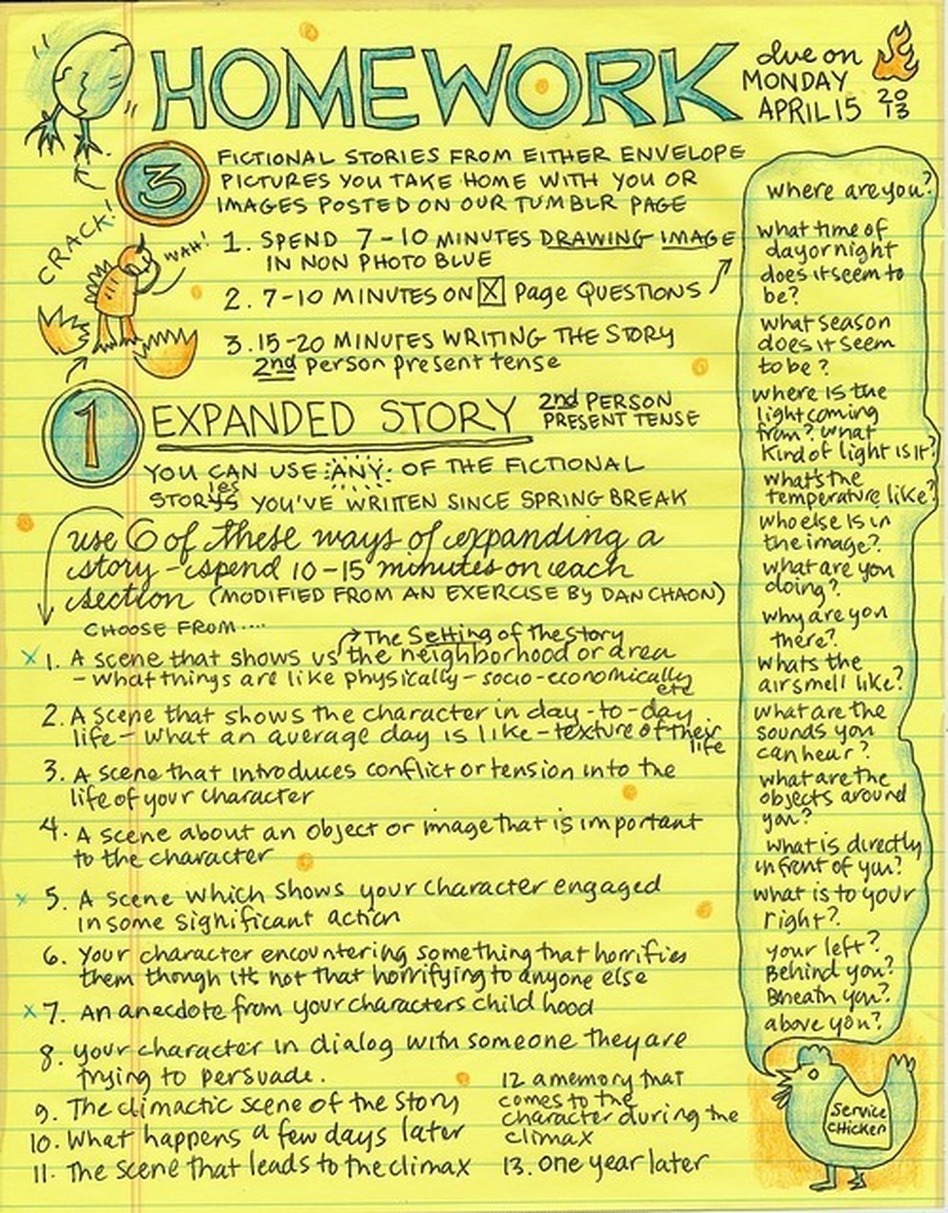 HOMEWORK
due on
MONDAY
APRIL 15 20
13
3
FICTIONAL STORIES FROM EITHER ENVELOPE
PICTURES YOU TAKE HOME WITH YOU OR
IMAGES POSTED ON OUR TUMBLR PAGE
CRACK!
WAH!
1. SPEND 7-10 MINUTES DRAWING IMAGE
IN NON PHOTO BLUE
2. 7-10 MINUTES ON X Page QUESTIONS
3. 15-20 MINUTES WRITING THE STORY
2nd person present tense
1
EXPANDED STORY
2nd PERSON
PRESENT TENSE
YOU CAN USE ANY OF THE FICTIONAL
STORIES YOU'VE WRITTEN SINCE SPRING BREAK
use 6 of these ways of expanding a
story - spend 10-15 minutes on each
section (MODIFIED FROM AN EXERCISE BY DAN CHAON)
CHOOSE FROM....
The Setting of the story
x 1. A scene that shows us the neighborhood or area
- what things are like physically - socio-economically
etc
2. A scene that shows the character in day-to-day
life - what an average day is like - texture of their
life
3. A scene that introduces conflict or tension into the
life of your character
4. A scene about an object or image that is important
to the character
x 5. A scene which shows your character engaged
in some significant action
6. Your character encountering something that horrifies
them though it's not that horrifying to anyone else
x 7. An anecdote from your characters child hood
8. your character in dialog with someone they are
trying to persuade.
9. The climactic scene of the story
10. What happens a few days later
11. The scene that leads to the climax
12 a memory that
comes to the
character during the
climax
13. one year later
where are you?
what time of
day or night
does it seem to
be?
what season
does it seem
to be?
where is the
light coming
from? what
kind of light is it?
what's the
temperature like?
who else is in
the image?
what are you
doing?
why are you
there?
whats the
air smell like?
what are the
sounds you
can hear?
what are the
objects around
you?
what is directly
in front of you?
what is to your
right?
your left?
Behind you?
Beneath you?
above you?
Service
CHICKEN